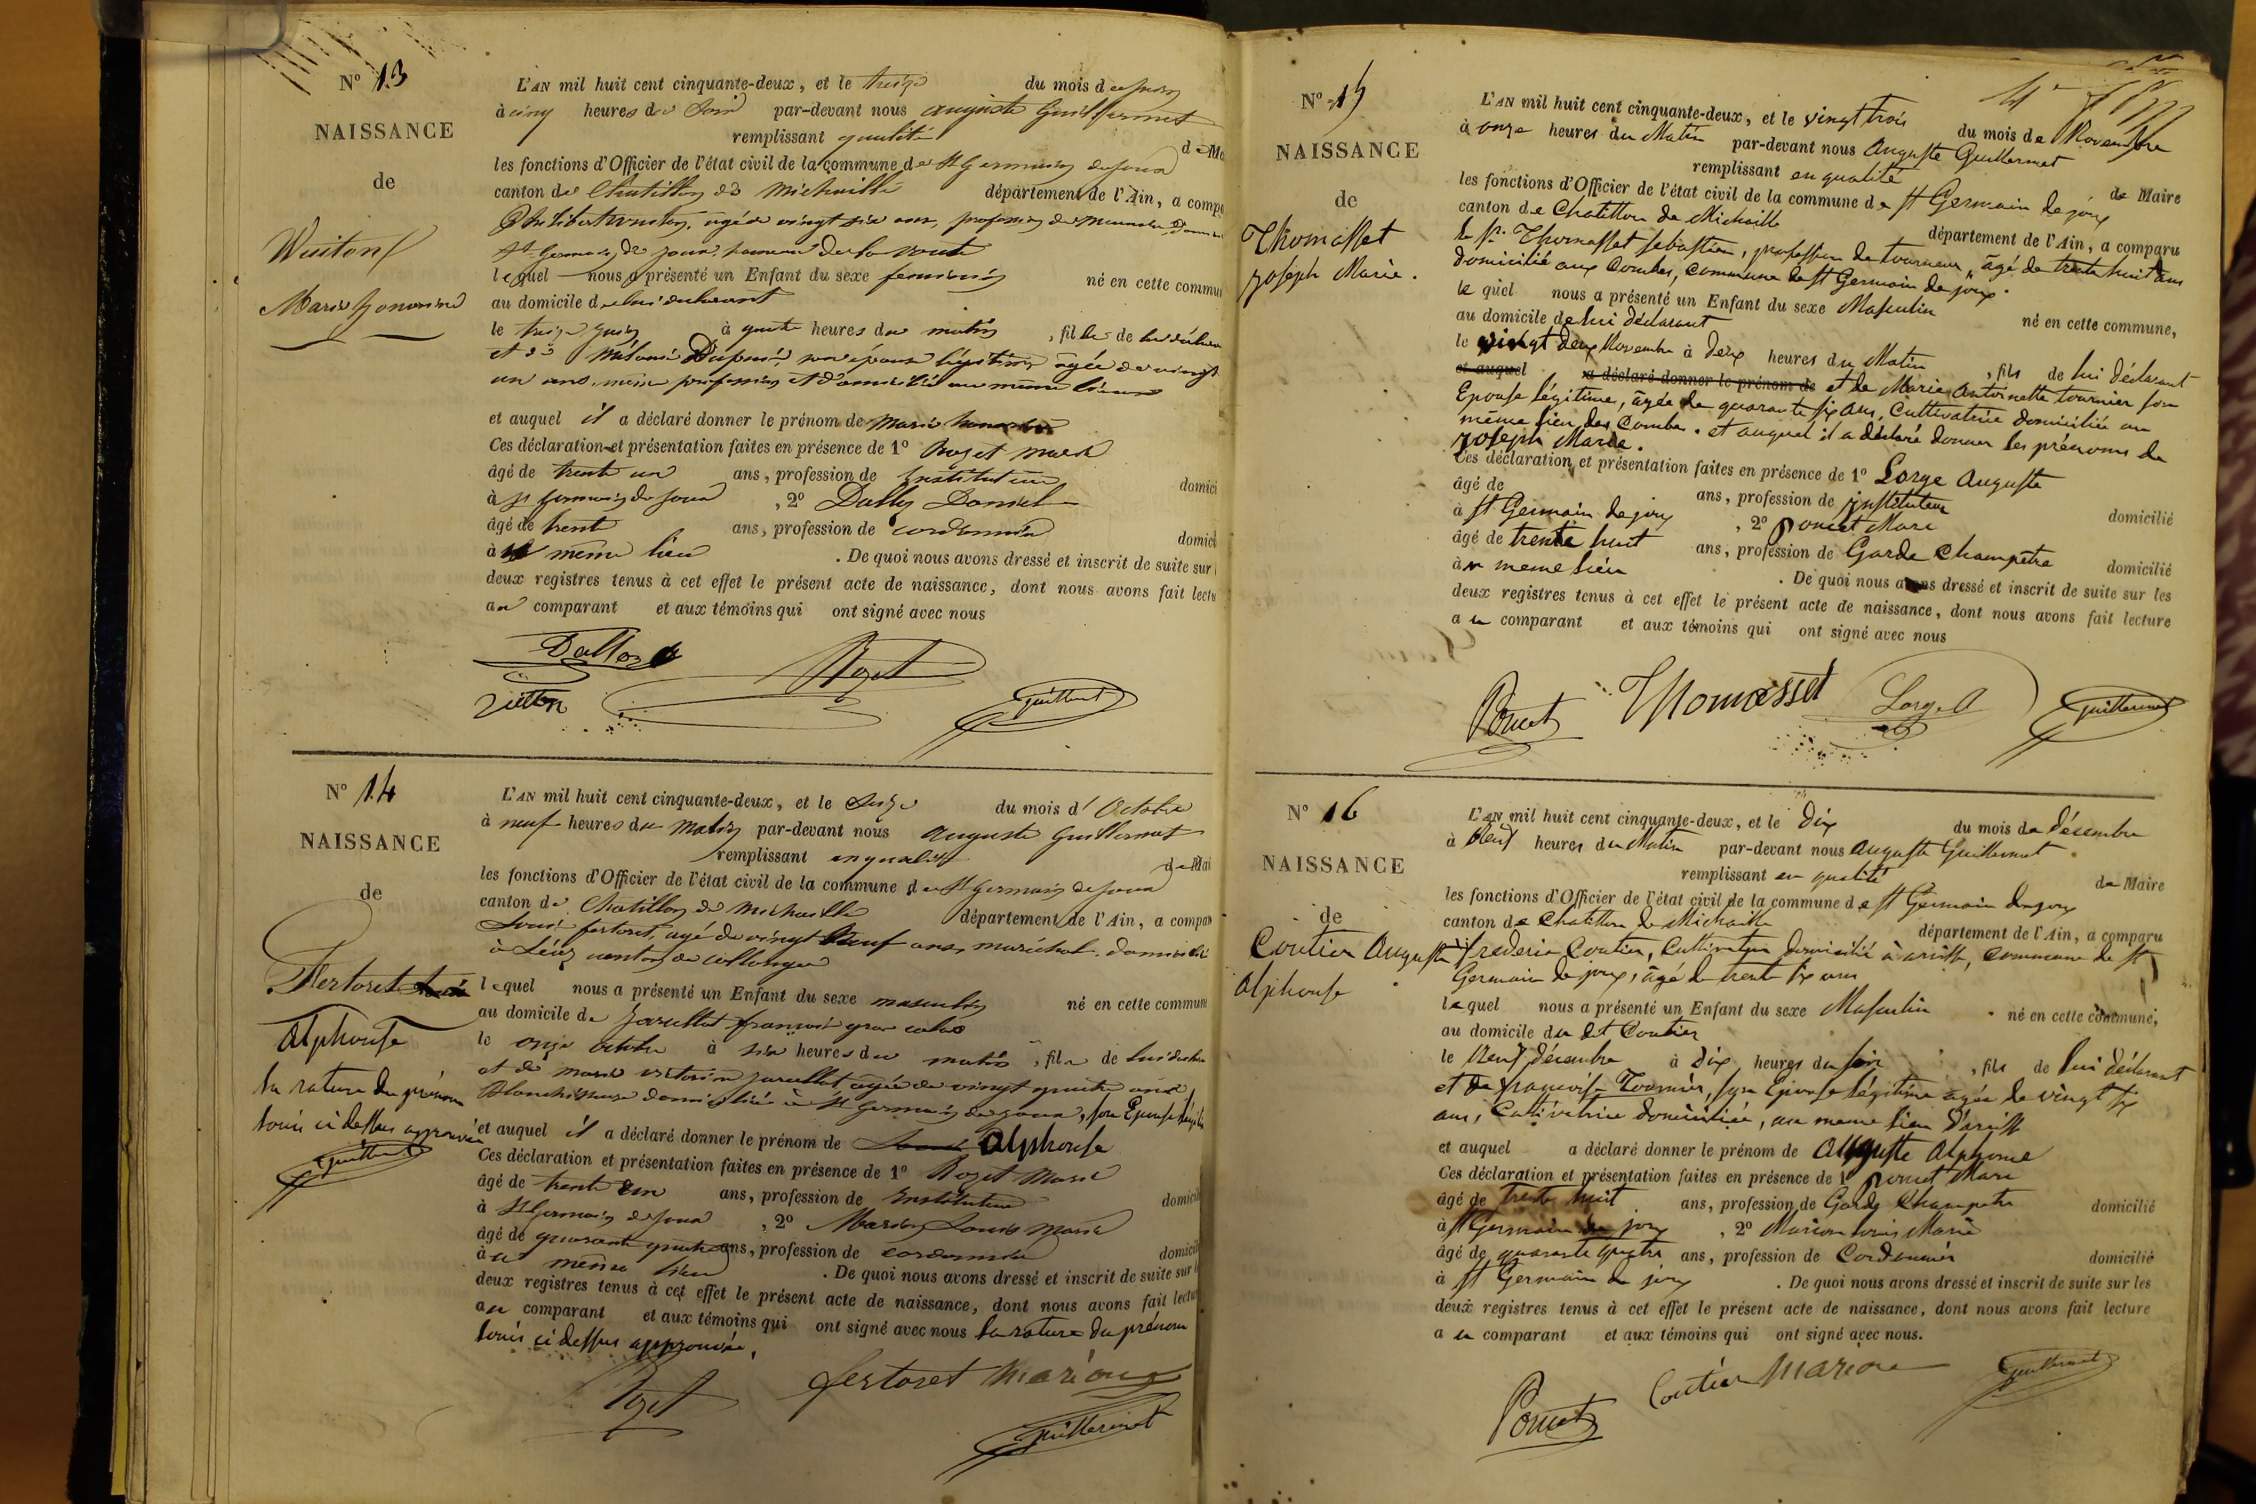 N° 13
NAISSANCE
de
Marie honorine
L'AN mil huit cent cinquante-deux, et le treize du mois de juin
à cinq heures du soir par-devant nous auguste Guillermet
remplissant qualité de Ma
les fonctions d'Officier de l'état civil de la commune de St Germain de joux
canton de Chatillon de michaille département de l'Ain, a compa
Philibert âgé de vingt six ans, profession de
St Germain de joux, hameau de la voute
lequel nous a présenté un Enfant du sexe feminin né en cette commu
au domicile de lui declarant
le treize juin à quatre heures du matin, fille de lui déclar
et de Mélanie Dupuis, son épouse légitime âgée de vingt
un ans, même profession et domiciliée au même lieu
et auquel il a déclaré donner le prénom de marie honorine
Ces déclaration et présentation faites en présence de 1° Rozet marie
âgé de trente un ans, profession de Instituteur domici
à St germain de joux, 2° Dalloz Daniel
âgé de trente ans, profession de cordonnier domici
à même lieu. De quoi nous avons dressé et inscrit de suite sur
deux registres tenus à cet effet le présent acte de naissance, dont nous avons fait lectu
au comparant et aux témoins qui ont signé avec nous
Dalloz Rozet
Guillermet
N° 14
NAISSANCE
de
Fertoret Louis
Alphonse
la rature du prénom
louis ci dessus approuvée
Guillermet
L'AN mil huit cent cinquante-deux, et le du mois d'Octobre
à neuf heures du matin par-devant nous auguste Guillermet
remplissant en qualité de Mai
les fonctions d'Officier de l'état civil de la commune de St germain de joux
canton de Chatillon de michaille département de l'Ain, a compar
Louis fertoret, agé de vingt neuf ans, maréchal, domicilié
à Léaz canton de collonges
lequel nous a présenté un Enfant du sexe masculin né en cette commun
au domicile de françois
le onze octobre à six heures du matin, fils de lui declar
et de marie victorine agée de vingt quatre ans
Blanchisseuse domiciliée à St germain de joux, son Epouse légitim
et auquel il a déclaré donner le prénom de Louis Alphonse
Ces déclaration et présentation faites en présence de 1° Rozet Marie
âgé de trente un ans, profession de Instituteur domicili
à St Germain de joux, 2° Marion Louis Marie
âgé de quarante quatre ans, profession de cordonnier domicili
à même lieu. De quoi nous avons dressé et inscrit de suite sur l
deux registres tenus à cet effet le présent acte de naissance, dont nous avons fait lectu
au comparant et aux témoins qui ont signé avec nous la rature du prénom
louis ci dessus approuvée,
fertoret Marion
Rozet
Guillermet
N° 15
NAISSANCE
de
Thomasset
joseph Marie.
L'AN mil huit cent cinquante-deux, et le vingt trois du mois de Novembre
à onze heures du Matin par-devant nous Auguste Guillermet
remplissant en qualité de Maire
les fonctions d'Officier de l'état civil de la commune de St Germain de joux
canton de Chatillon de Michaille département de l'Ain, a comparu
le Sr Thomasset sebastien, profession de tourneur, âgé de trente huit ans
domicilié aux Combes, commune de St Germain de joux.
le quel nous a présenté un Enfant du sexe Masculin né en cette commune,
au domicile de lui déclarant
le vingt deux Novembre à deux heures du Matin, fils de lui déclarant
et auquel a déclaré donner le prénom de et de Marie Antoinette tournier son
Epouse légitime, âgée de quarante six ans, Cultivatrice domiciliée au
même lieu des Combes. et auquel il a déclaré donner les prénoms de
joseph Marie.
Ces déclaration et présentation faites en présence de 1° Lorge Auguste
âgé de ans, profession de jnstituteur domicilié
à St Germain de joux, 2° poncet Marc
âgé de trente huit ans, profession de Garde Champetre domicilié
à u meme lieu. De quoi nous avons dressé et inscrit de suite sur les
deux registres tenus à cet effet le présent acte de naissance, dont nous avons fait lecture
a u comparant et aux témoins qui ont signé avec nous
Poncet Thomasset Lorge A Guillermet
N° 16
NAISSANCE
de
Coutier Auguste
Alphonse
L'AN mil huit cent cinquante-deux, et le dix du mois de désembre
à Neuf heures du Matin par-devant nous Auguste Guillermet
remplissant en qualité de Maire
les fonctions d'Officier de l'état civil de la commune de St Germain de joux
canton de Chatillon de Michaille département de l'Ain, a comparu
frederic Coutier, Cultivateur domicilié à commune de St
Germain de joux, âgé de trente six ans
lequel nous a présenté un Enfant du sexe Masculin né en cette commune,
au domicile du dt Coutier
le Neuf désembre à dix heures du soir, fils de lui déclarant
et de françoise Tournier, son Epouse légitime agée de vingt six
ans, Cultivatrice domiciliée, au meme lieu
et auquel a déclaré donner le prénom de Auguste Alphonse
Ces déclaration et présentation faites en présence de 1 poncet Marc
âgé de trente huit ans, profession de Garde Champetre domicilié
à St Germain de joux, 2° Marion louis Marie
âgé de quarante quatre ans, profession de Cordonnier domicilié
à St Germain de joux. De quoi nous avons dressé et inscrit de suite sur les
deux registres tenus à cet effet le présent acte de naissance, dont nous avons fait lecture
a u comparant et aux témoins qui ont signé avec nous.
Poncet Coutier Marion Guillermet